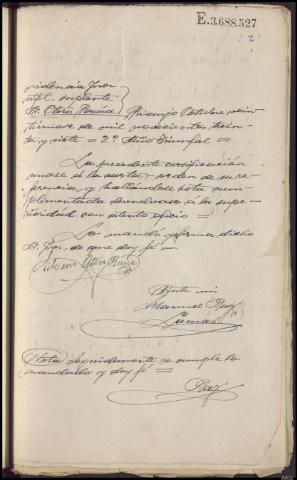 E.3.688.527
2
Providencia Juez
mpl. suplente
Sr. Otero Rouña
Rianjo Octubre vein-
tinueve de mil novecientos trein-
ta y siete = 2º Año Triunfal =
La precedente certificación
unase á la carta-orden de su re-
ferencia, y hallándose esta cum-
plimentada devuelvase á la supe-
rioridad con atento oficio =
Lo mandó y firma dicho
Sr. Juez, de que doy fé =
Otero
Ante mi
Manuel Rey
Lamas
Nota Seguidamente se cumple lo
mandado y doy fé =
Rey
ARG